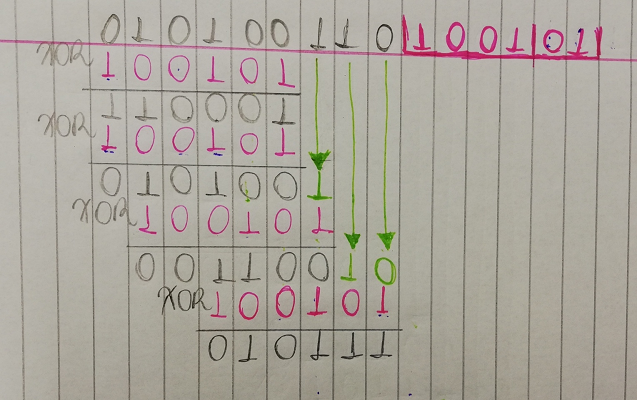 0 1 0 1 0 0 1 1 0 1 0 0 1 0 1
XOR 1 0 0 1 0 1
1 1 0 0 0 1
XOR 1 0 0 1 0 1
0 1 0 1 0 0 1
XOR 1 0 0 1 0 1
0 0 1 1 0 0 1 0
XOR 1 0 0 1 0 1
0 1 0 1 1 1